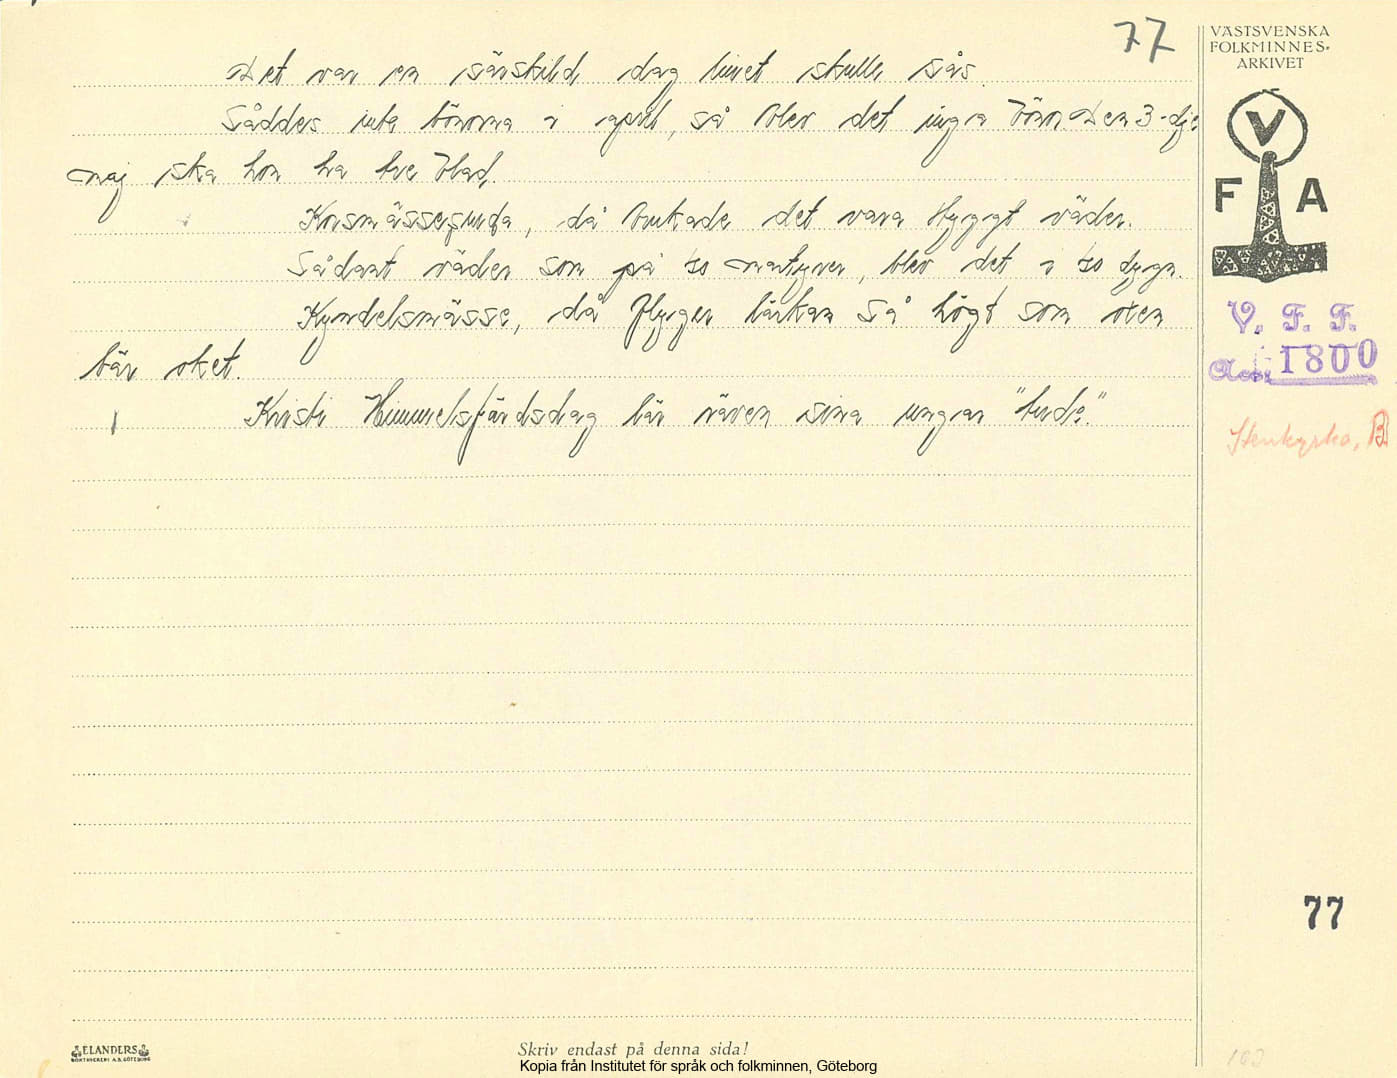 77
VÄSTSVENSKA
FOLKMINNES-
ARKIVET
Det var en särskild dag linet skulle sås.
Såddes inte bönorna i april, så blev det inga bönor. Den 3-dje
maj ska hon ha tre blad.
Korsmässe, då brukade det vara styggt väder.
Sådant väder som på 40 martyrer, blev det i 40 dygn.
Kyndelsmässe, då flyger lärkan så högt som oxen
bär oket.
Kristi Himmelsfärdsdag bär räven sina ungar "ude."
V
F A
V. F. F.
Acc. 1800
Stenkyrka, B.
77
ELANDERS
BOKTRYCKERI A.B. GÖTEBORG
Skriv endast på denna sida!
Kopia från Institutet för språk och folkminnen, Göteborg